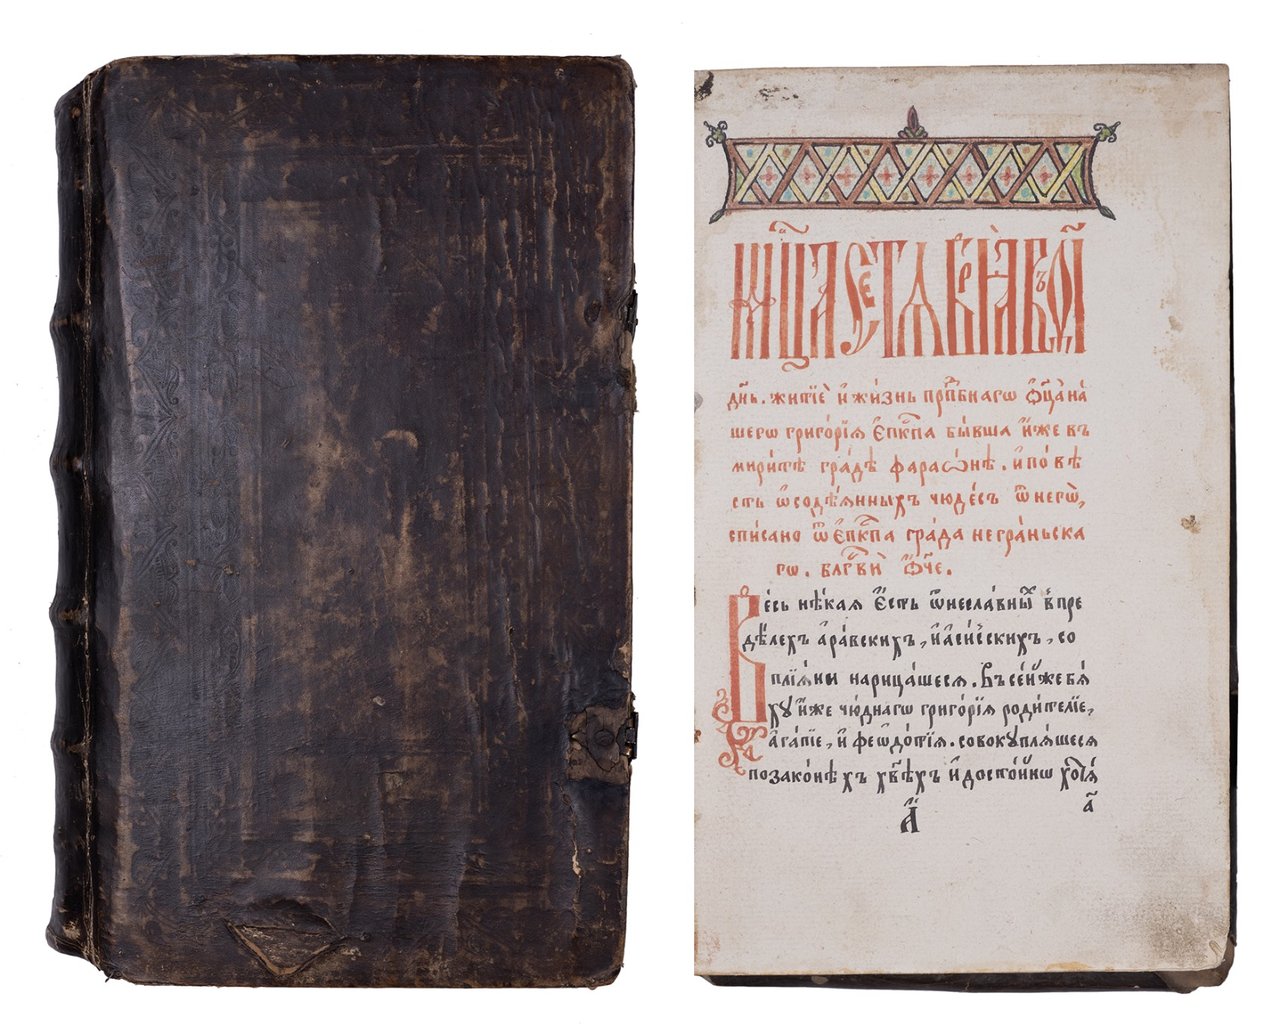 мⷭ҇ца сеⷮтѧврїѧ въ о҃і
дн҃ь. житїѐ и҆ жи́знь прⷣпбнагѡ ѻ҆ц҃а на́
шегѡ григо́рїѧ є҆пⷭ҇кпа бы́вша и҆́же въ
мири́тѣ гра́дѣ фарасѡ́нѣ. и҆ по́вѣ
сть ѡ҆ содѣ́ѧнныхъ чюдесъ ѿ негѡ̀,
спи́сано ѿ є҆пⷭ҇кпа гра́да негра́ньска
гѡ. блгⷭ҇ви̑ ѻ҆́ч҃е.
Ве́сь нѣ́каѧ є҆́сть ѿ несла́вныⷯ в пре
дѣ́лехъ а҆ра́вскихъ, и҆ а҆сі́йскихъ, со
плїѧ́ни нарица́шесѧ. въ се́й же бѧ
хꙋ и҆́же чю́днагѡ григо́рїѧ роди́телїе,
а҆га́пїе, и҆ ѳеѡдо́тїѧ. совокꙋплѧ́шесѧ
по зако́нѣхъ хв҃ѣхъ и҆ досто́йнѡ хо́тїѧ
а҃
а҃